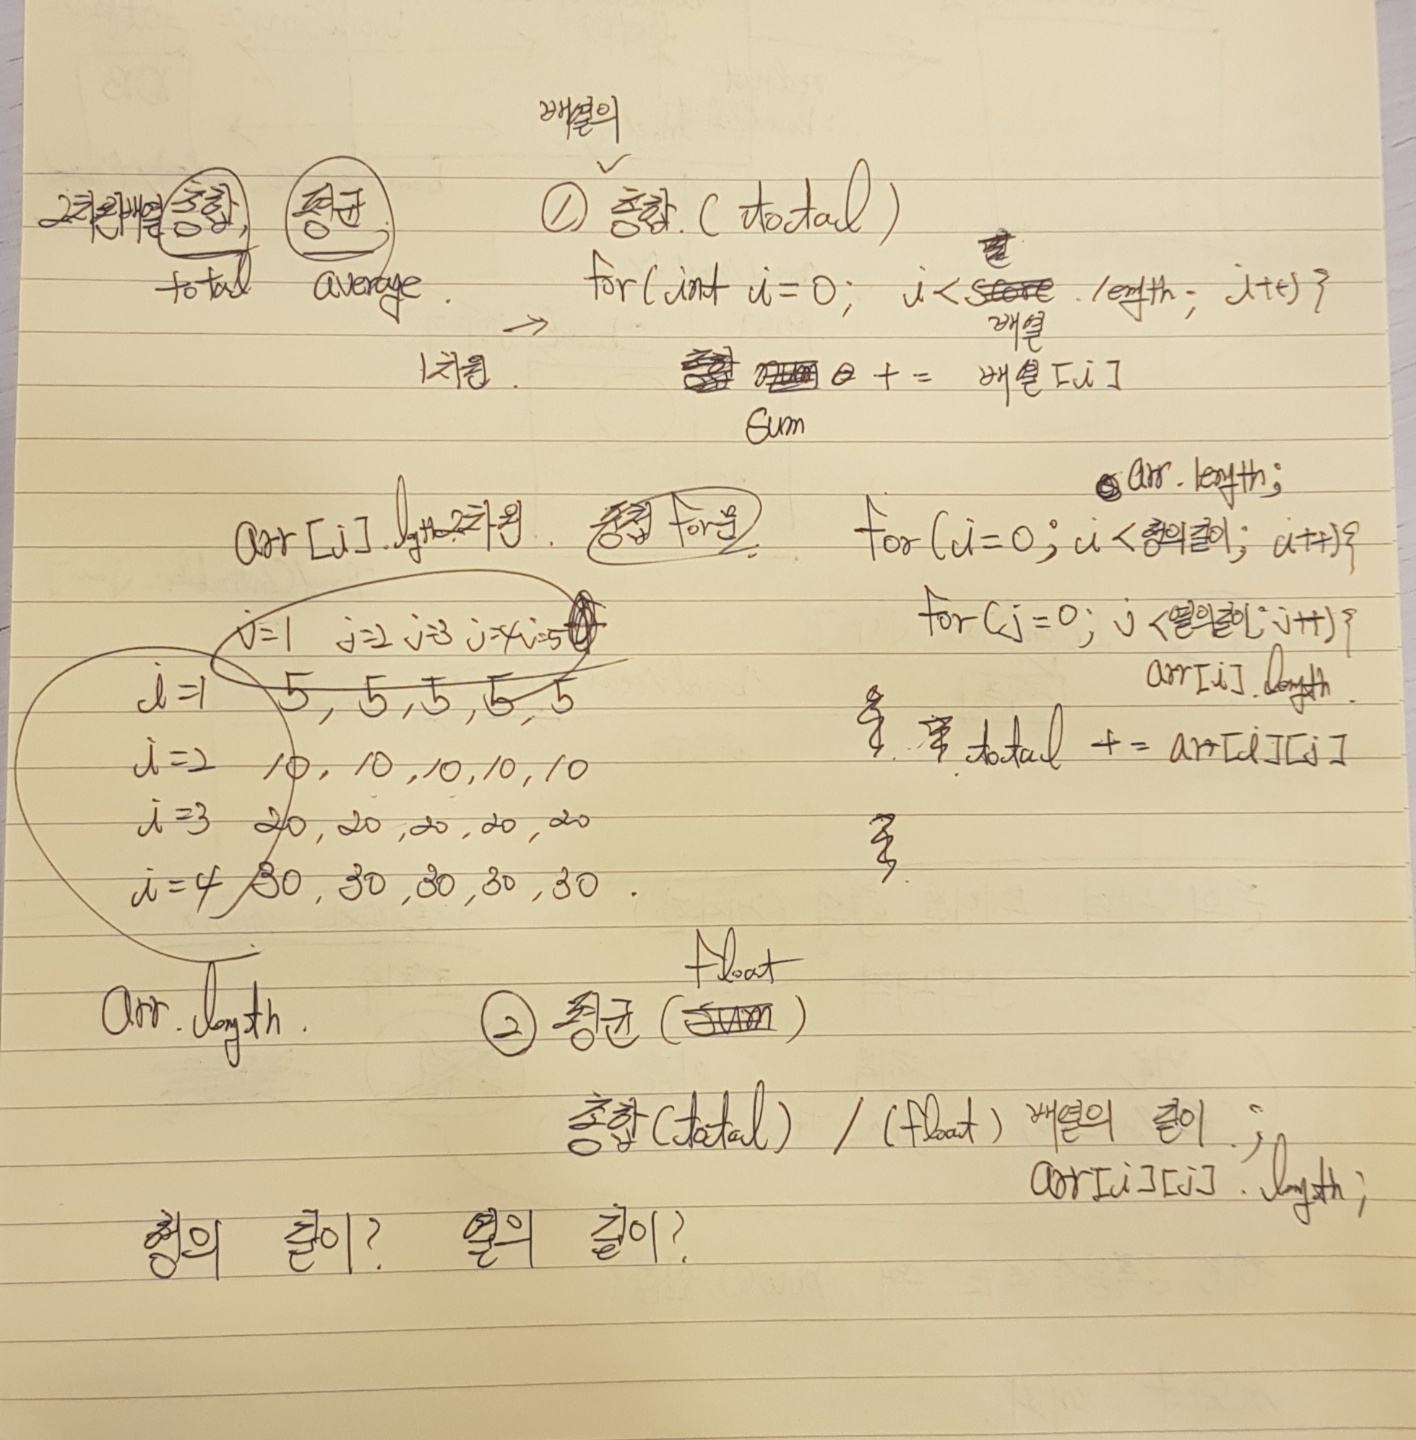 배열의
2차원배열 총합, 평균 ① 총합. (total)
total average.
for(int i=0; i< .length; i++){
배열
1차원. → += 배열[i]
sum
arr.length;
arr[i].lgth 2차원. 중첩 for문 for(i=0; i<행의길이; i++){
j=1 j=2 j=3 j=4 j=5 for(j=0; j<열의길이; j++){
arr[i].length.
i=1 5, 5, 5, 5, 5
total += arr[i][j]
i=2 10, 10, 10, 10, 10
i=3 20, 20, 20, 20, 20
}
i=4 30, 30, 30, 30, 30.
float
arr.length. ② 평균 (sum)
총합(total) / (float) 배열의 길이.;
arr[i][j].length;
행의 길이? 열의 길이?